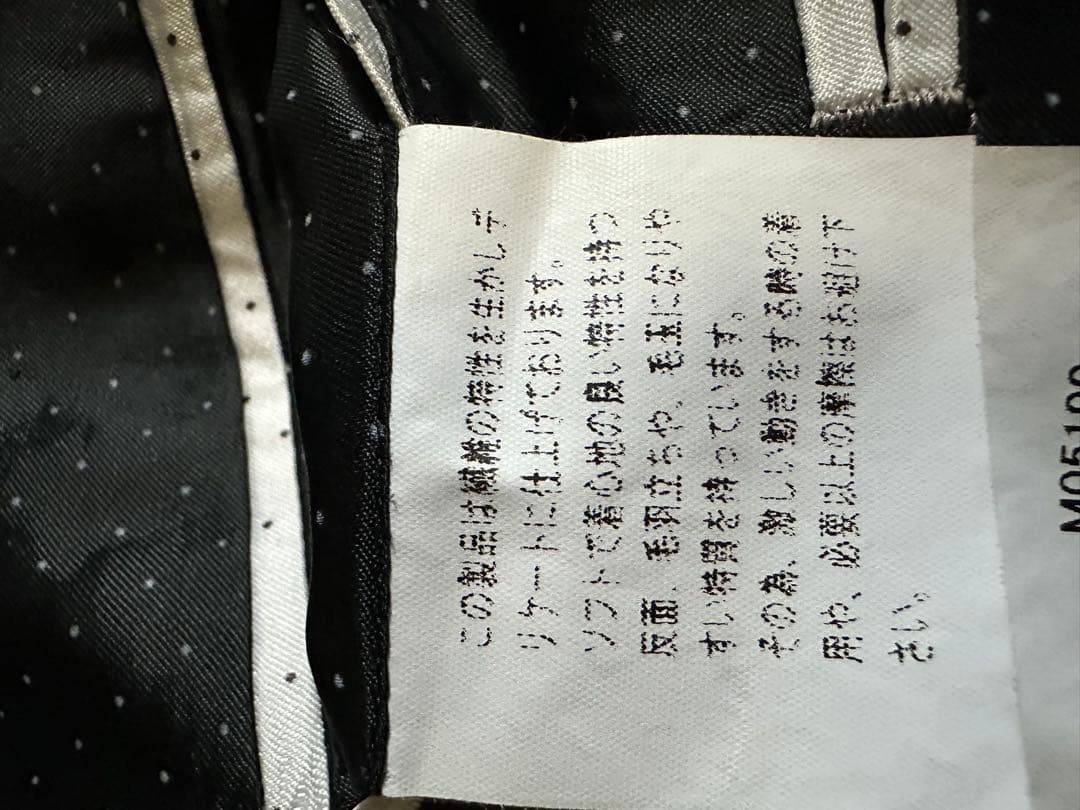 この製品は繊維の特性を生かしデ
リケートに仕上げております。
ソフトで着心地の良い特性を持つ
反面、毛羽立ちや、毛玉になりや
すい特間を持っています。
その為、激しい動きをする時の着
用や、必要以上の摩擦はお避け下
さい。